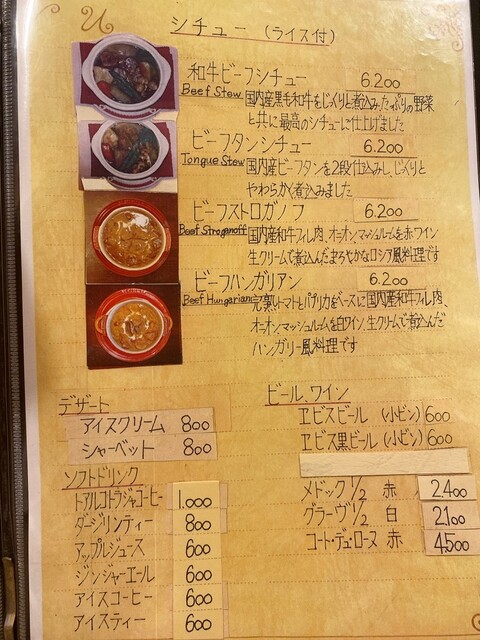 シチュー (ライス付)
和牛ビーフシチュー 6.200
Beef Stew
国内産黒毛和牛をじっくりと煮込みたっぷりの野菜
と共に最高のシチューに仕上げました
ビーフタンシチュー 6.200
Tongue Stew
国内産ビーフタンを2段仕込みし、じっくりと
やわらかく煮込みました
ビーフストロガノフ 6.200
Beef Stroganoff
国内産和牛フィレ肉、オニオンマッシュルームを赤ワイン
生クリームで煮込んだまろやかなロシア風料理です
ビーフハンガリアン 6.200
Beef Hungarian
完熟トマトとパプリカをベースに国内産和牛フィレ肉、
オニオンマッシュルームを白ワイン、生クリームで煮込んだ
ハンガリー風料理です
デザート
アイスクリーム 800
シャーベット 800
ソフトドリンク
トアルコトラジャコーヒー 1.000
ダージリンティー 800
アップルジュース 600
ジンジャーエール 600
アイスコーヒー 600
アイスティー 600
ビール、ワイン
ヱビスビール (小ビン) 600
ヱビス黒ビール (小ビン) 600
メドック 1/2 赤 2.400
グラーヴ 1/2 白 2.100
コート・デュ・ローヌ 赤 4.500